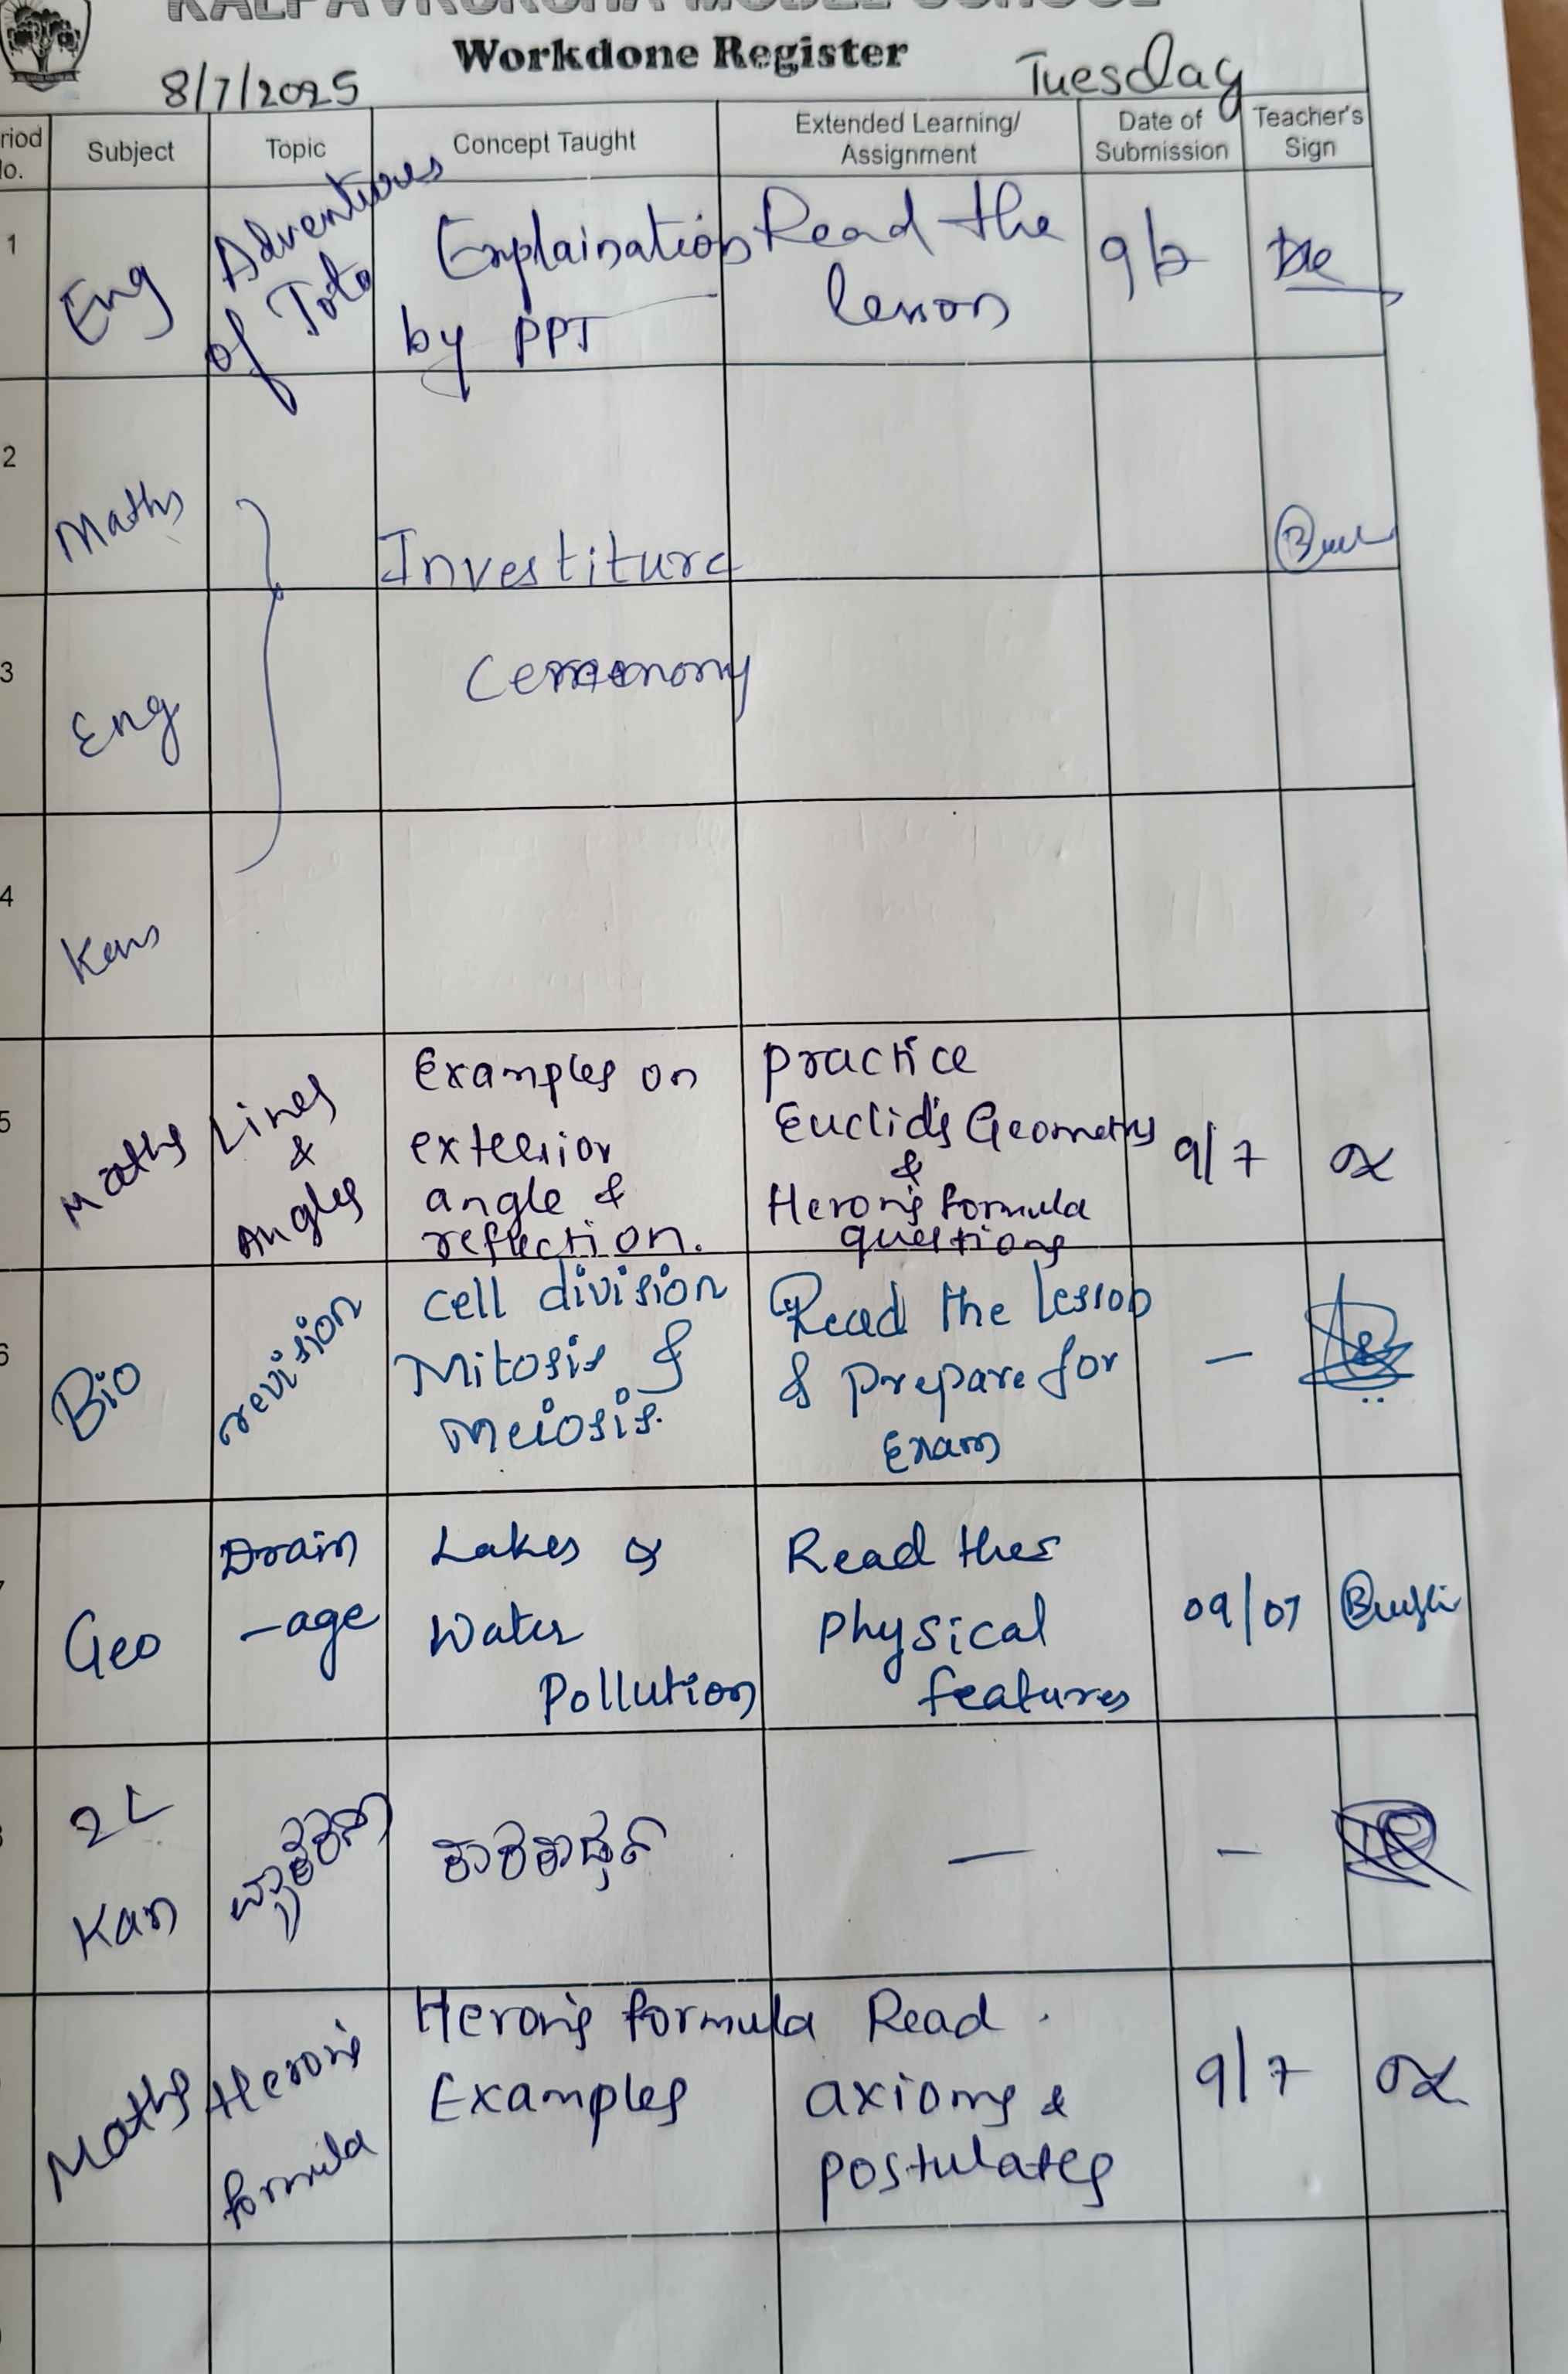 KALPAVRUKSHA MODEL SCHOOL
Workdone Register
8/7/2025 Tuesday
riod
lo.
Subject
Topic
Concept Taught
Extended Learning/
Assignment
Date of
Submission
Teacher's
Sign
1
Eng
Adventures
of Toto
Explaination
by PPT
Read the
lesson
9/7
2
Maths
Investiture
3
Eng
Ceremony
4
Kan
5
Maths
Lines
&
Angles
Examples on
exterior
angle &
reflection.
practice
Euclid's Geometry
&
Heron's formula
questions
9/7
6
Bio
revision
Cell division
Mitosis &
meiosis.
Read the lesson
& prepare for
Exam
—
Geo
Drain
-age
Lakes &
Water
Pollution
Read the
Physical
features
09/07
2L
Kan
ವ್ಯಾಕರಣ
—
—
Maths
Heron's
formula
Heron's formula
Examples
Read
axioms &
postulates
9/7